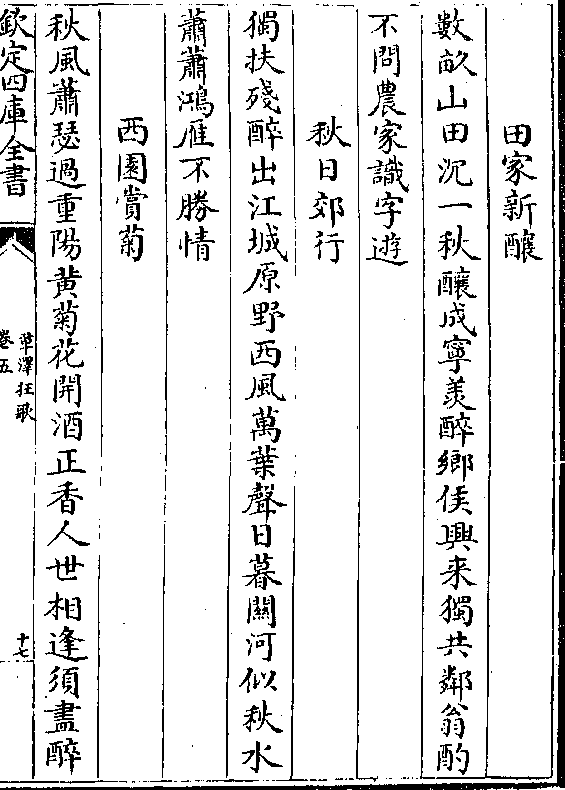 田家新釀
數畝山田沉一秋釀成寧羨醉鄉侯興来獨共鄰翁酌
不問農家識字遊
秋日郊行
獨扶殘醉出江城原野西風萬葉聲日暮關河似秋水
蕭蕭鴻雁不勝情
西園賞菊
秋風蕭瑟過重陽黄菊花開酒正香人世相逢須盡醉
欽定四庫全書
草澤狂歌
卷五
十七